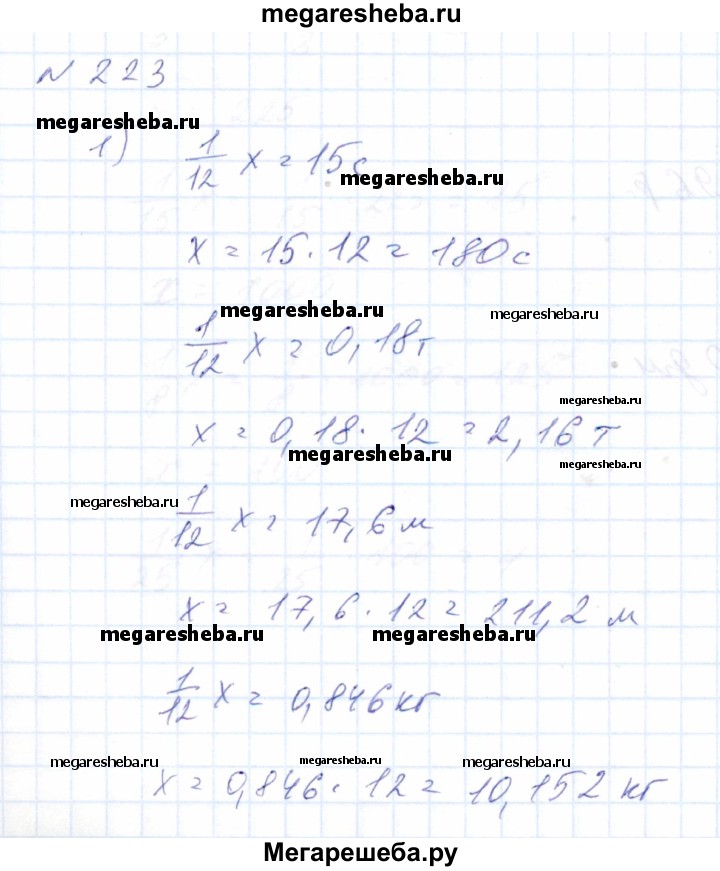 megaresheba.ru
N 223
megaresheba.ru
1) 1/12 x = 15с
megaresheba.ru
x = 15 · 12 = 180 с
megaresheba.ru
megaresheba.ru
1/12 x = 0,18т
megaresheba.ru
x = 0,18 · 12 = 2,16 т
megaresheba.ru
megaresheba.ru
megaresheba.ru
1/12 x = 17,6 м
megaresheba.ru
x = 17,6 · 12 = 211,2 м
megaresheba.ru
megaresheba.ru
1/12 x = 0,846 кг
megaresheba.ru
megaresheba.ru
megaresheba.ru
x = 0,846 · 12 = 10,152 кг
Мегарешеба.ру